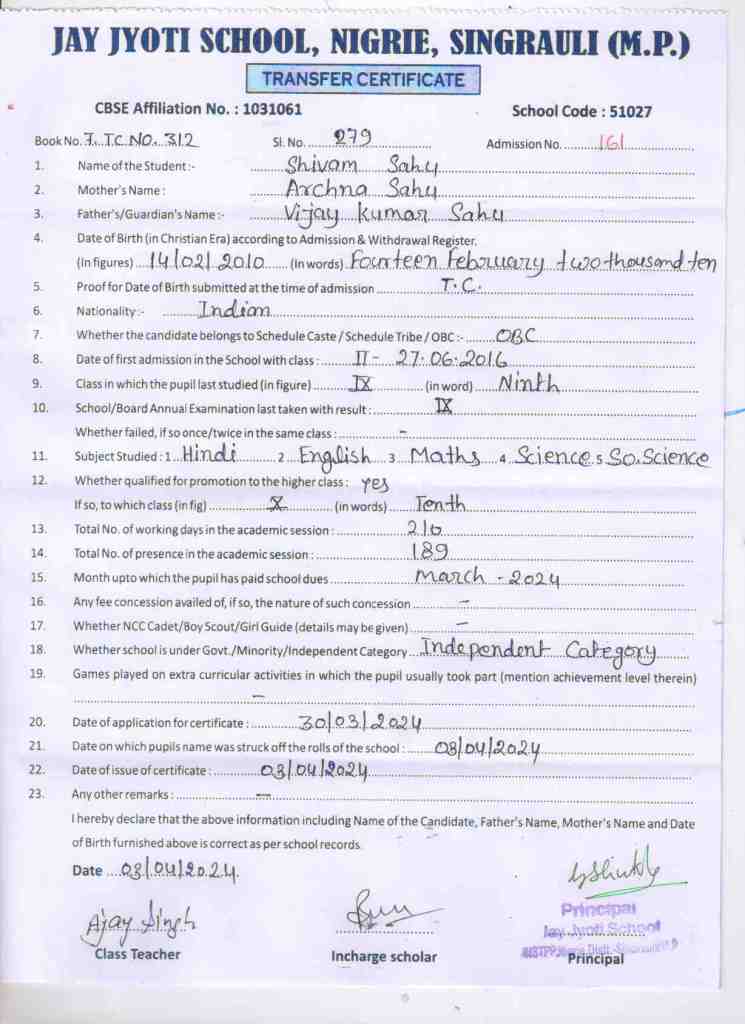 JAY JYOTI SCHOOL, NIGRIE, SINGRAULI (M.P.)
TRANSFER CERTIFICATE
CBSE Affiliation No. : 1031061 School Code : 51027
Book No. 7. T.C NO. 312 Sl. No. 279 Admission No. 161
1. Name of the Student :- Shivam Sahu
2. Mother's Name : Archna Sahu
3. Father's/Guardian's Name :- Vijay Kumar Sahu
4. Date of Birth (in Christian Era) according to Admission & Withdrawal Register.
(In figures) 14/02/2010 (In words) Fourteen February two thousand ten
5. Proof for Date of Birth submitted at the time of admission T.C.
6. Nationality :- Indian
7. Whether the candidate belongs to Schedule Caste / Schedule Tribe / OBC :- OBC
8. Date of first admission in the School with class : II - 27.06.2016
9. Class in which the pupil last studied (in figure) IX (in word) Ninth
10. School/Board Annual Examination last taken with result : IX
Whether failed, if so once/twice in the same class : -
11. Subject Studied : 1 Hindi 2 English 3 Maths 4 Science 5 So.Science
12. Whether qualified for promotion to the higher class : yes
If so, to which class (in fig) X (in words) Tenth
13. Total No. of working days in the academic session : 210
14. Total No. of presence in the academic session : 189
15. Month upto which the pupil has paid school dues March - 2024
16. Any fee concession availed of, if so, the nature of such concession -
17. Whether NCC Cadet/Boy Scout/Girl Guide (details may be given) -
18. Whether school is under Govt./Minority/Independent Category Independent Category
19. Games played on extra curricular activities in which the pupil usually took part (mention achievement level therein)
-
20. Date of application for certificate : 30/03/2024
21. Date on which pupils name was struck off the rolls of the school : 03/04/2024
22. Date of issue of certificate : 03/04/2024
23. Any other remarks : -
I hereby declare that the above information including Name of the Candidate, Father's Name, Mother's Name and Date
of Birth furnished above is correct as per school records.
Date 03/04/2024.
Ajay Singh
Principal
Jay Jyoti School
Class Teacher Incharge scholar Principal